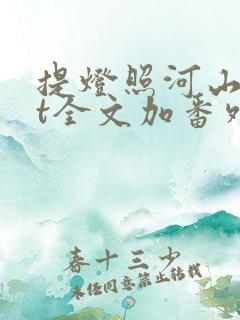 提燈照河山
t全文加番外
春十三少
未经同意禁止转载